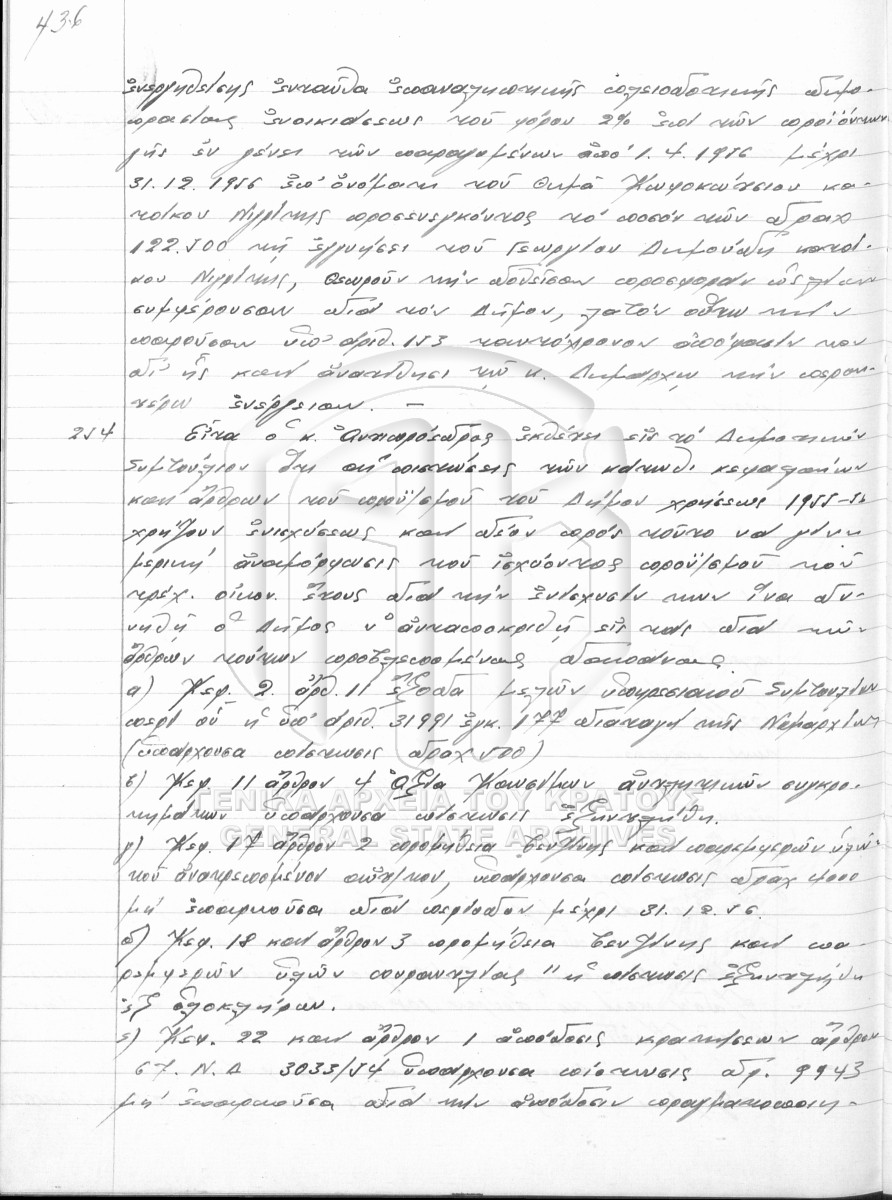 436
ἐνεργηθείσης ἐνταῦθα ἐπαναληπτικῆς πλειοδοτικῆς δημο-
πρασίας ἐνοικιάσεως τοῦ φόρου 2% ἐπί τῶν προϊόντων
γῆς ἐν γένει τῶν παραγομένων ἀπό 1.4.1956 μέχρι
31.12.1956 ἐπ' ὀνόματι τοῦ Θωμᾶ κα-
τοίκου Νιγρίτης προσενεγκόντος τό ποσόν τῶν δραχ
122.500 τῇ ἐγγυήσει τοῦ Γεωργίου Δημούδη κατοί-
κου Νιγρίτης, θεωροῦν τήν δοθεῖσαν προσφοράν ὡς λίαν
συμφέρουσαν διά τόν Δῆμον, οὕτω τήν
παροῦσαν ὑπ' ἀριθ. 153 ταυτόχρονον ἀπόφασίν του
δι' ἧς καί ἀνατίθησι τῷ κ. Δημάρχῳ τήν περαι-
τέρω ἐνέργειαν. —
254 Εἶτα ὁ κ. Ἀντιπρόεδρος ἐκθέτει εἰς τό Δημοτικόν
Συμβούλιον ὅτι αἱ πιστώσεις τῶν κάτωθι κεφαλαίων
καί ἄρθρων τοῦ προϋ/σμοῦ τοῦ Δήμου χρήσεως 1955-56
χρήζουν ἐνισχύσεως καί δέον πρός τοῦτο νά γίνῃ
μερική ἀναμόρφωσις τοῦ ἰσχύοντος προϋ/σμοῦ τοῦ
τρέχ. οἰκον. ἔτους διά τήν ἐνίσχυσίν των ἵνα δυ-
νηθῇ ὁ Δῆμος ν' ἀνταποκριθῇ εἰς τάς διά τῶν
ἄρθρων τούτων προβλεπομένας δαπάνας.
α) Κεφ. 2. ἄρθ. 11 ἔξοδα μελῶν ὑπηρεσιακοῦ Συμβουλίου
περί οὗ ἡ ὑπ' ἀριθ. 31991 ἐγκ. 177 διαταγή τῆς Νομαρχίας
(ὑπάρχουσα πίστωσις δραχ 500)
β) Κεφ. 11 ἄρθρον 4 Ἀξία Καυσίμων ἀντλητικῶν συγκρο-
τημάτων ὑπάρχουσα πίστωσις ἐξηντλήθη.
γ) Κεφ. 17 ἄρθρον 2 προμήθεια βενζίνης καί παρεμφερῶν ὑλῶν
τοῦ ἀνατρεπομένου αὐτ/του, ὑπάρχουσα πίστωσις δραχ 4000
μή ἐπαρκοῦσα διά περίοδον μέχρι 31.12.56.
δ) Κεφ. 18 καί ἄρθρον 3 προμήθεια βενζίνης καί πα-
ρεμφερῶν ὑλῶν πυραντλίας " ἡ πίστωσις ἐξηντλήθη
ἐξ ὁλοκλήρου.
ε) Κεφ. 22 καί ἄρθρον 1 ἀπόδοσις κρατήσεων ἄρθρου
67. Ν.Δ 3033/54 ὑπάρχουσα πίστωσις δρ. 9943
μή ἐπαρκοῦσα διά τήν ἀπόδοσιν πραγματοποιη-
ΓΕΝΙΚΑ ΑΡΧΕΙΑ ΤΟΥ ΚΡΑΤΟΥΣ
GENERAL STATE ARCHIVES